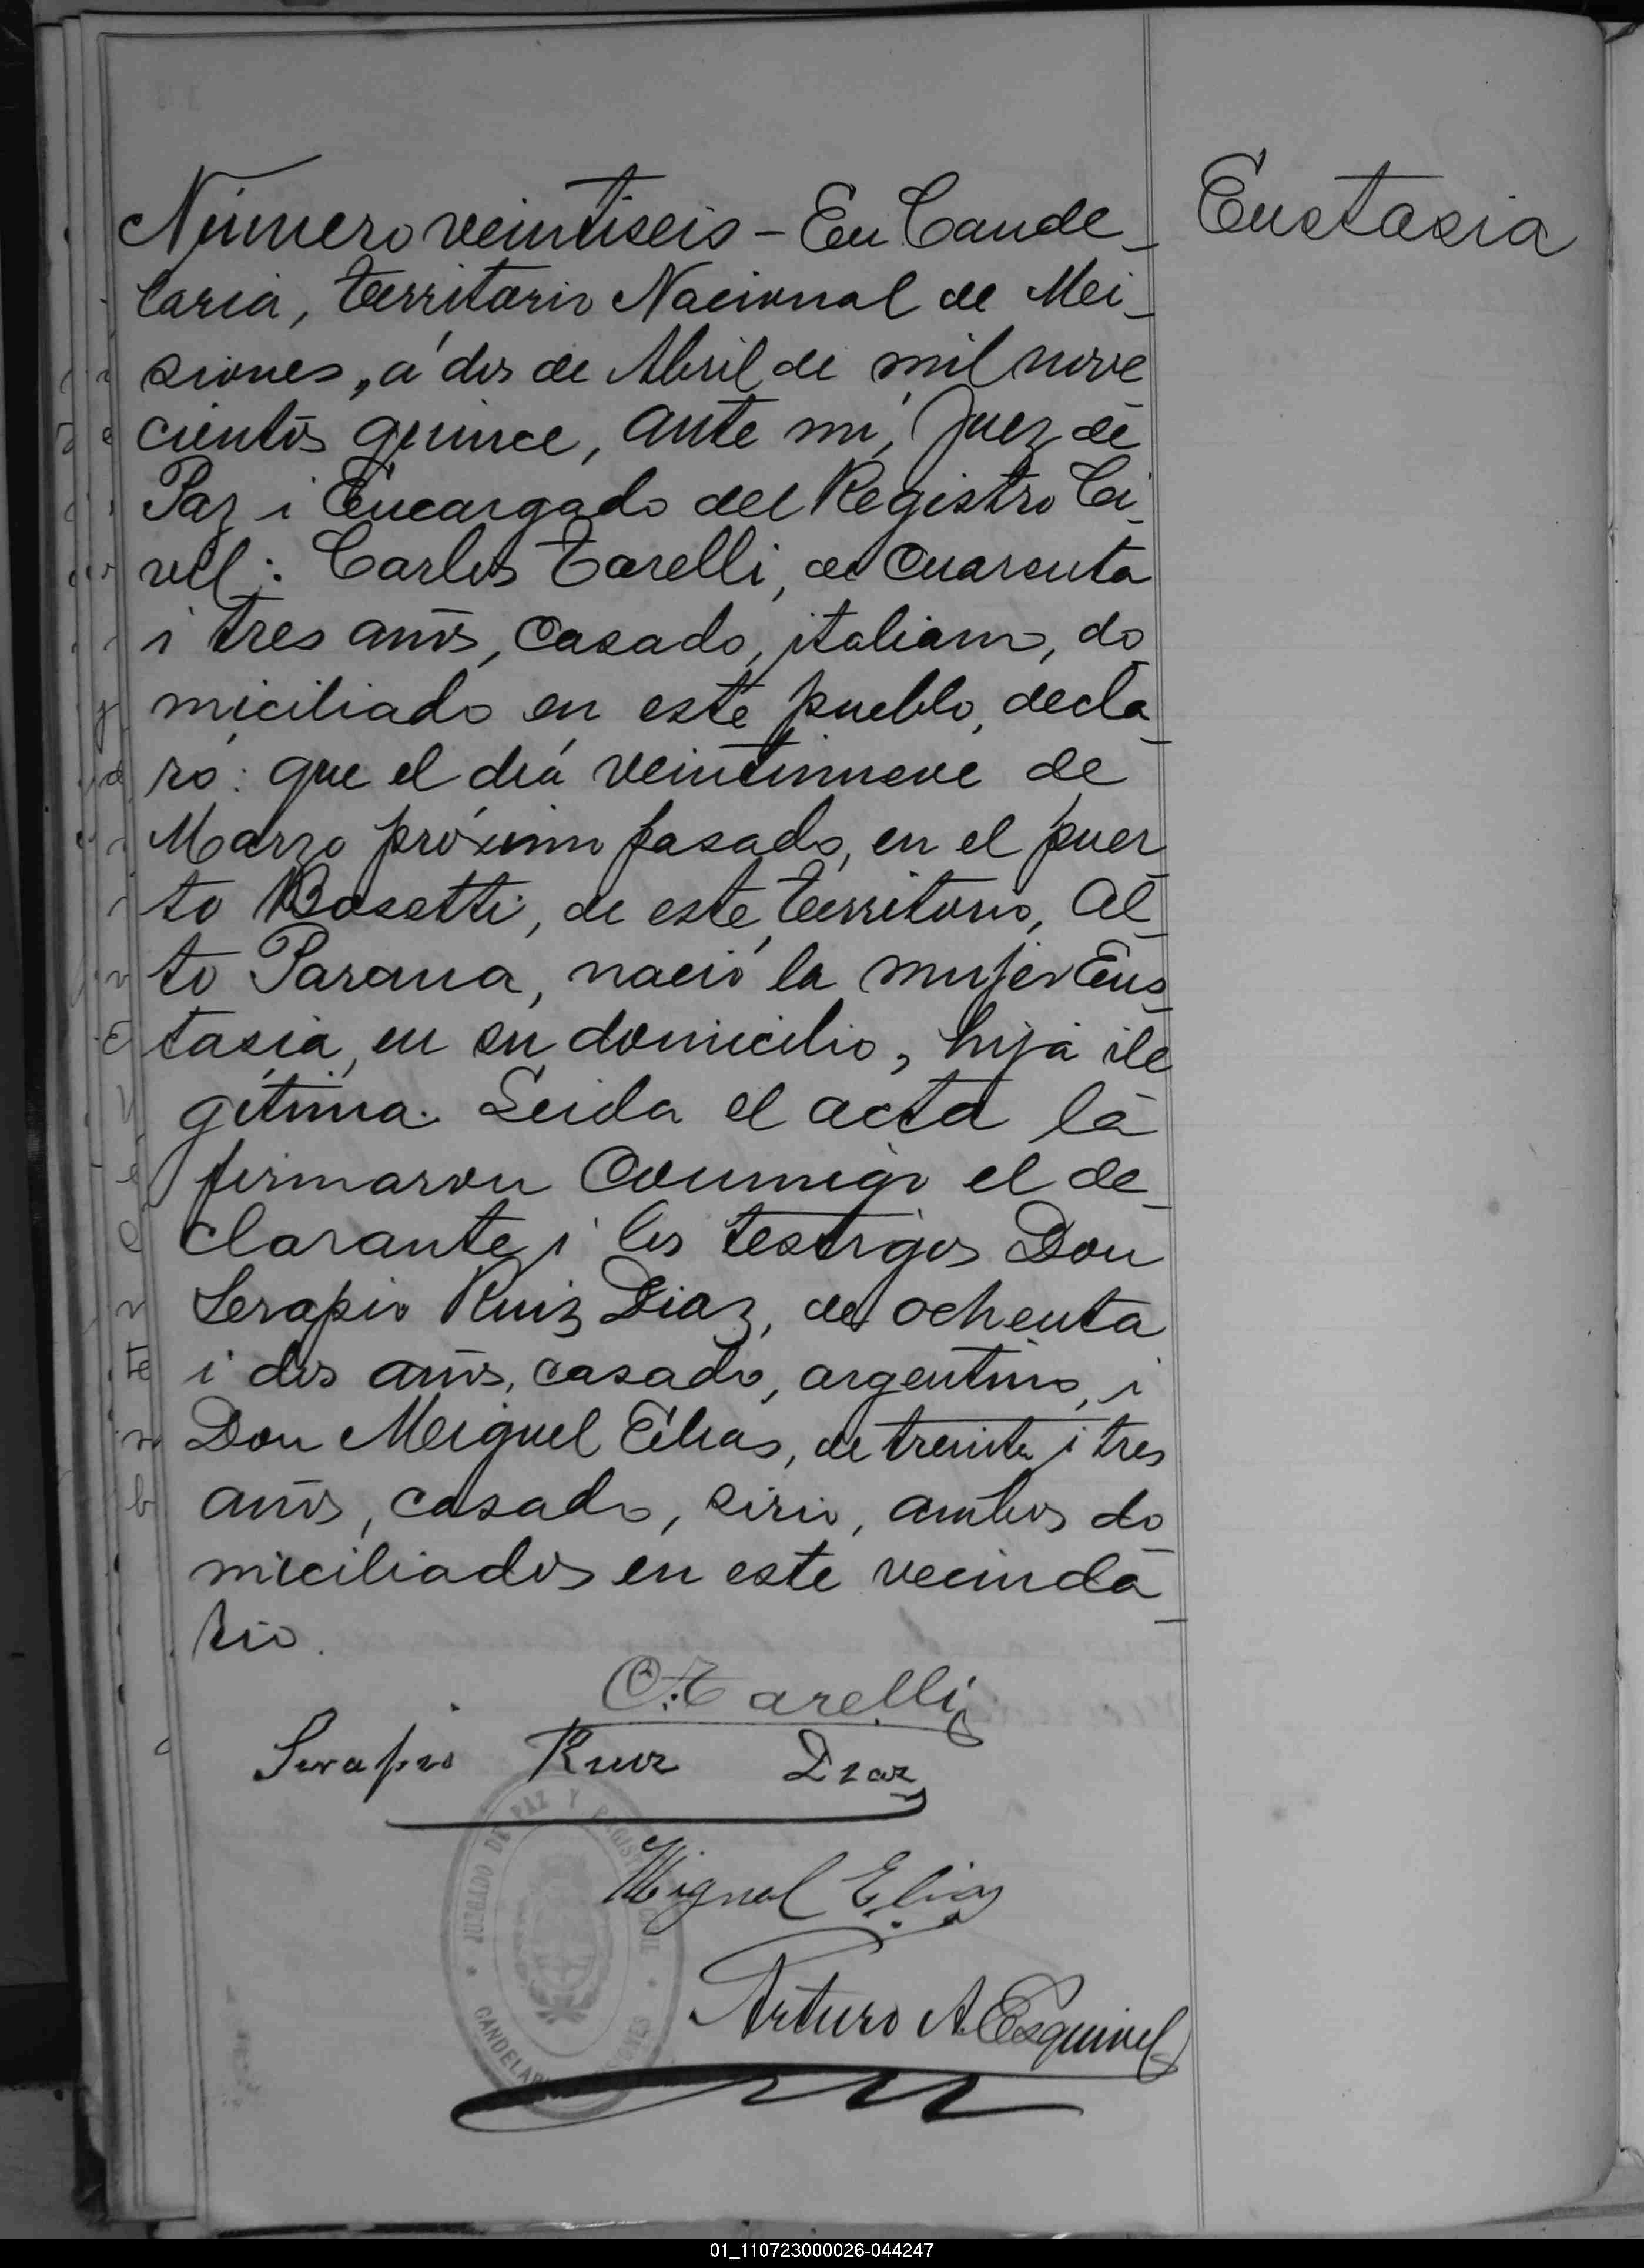 Eustasia
Número veintiseis - En Cande_
laria, territorio Nacional de Mi_
siones, á dos de Abril de mil nove
cientos quince, ante mi, Juez de
Paz i Encargado del Registro Ci_
vil: Carlos Tarelli, de cuarenta
i tres años, casado, italiano, do_
miciliado en este pueblo, decla_
ró: que el diá veintinueve de
Marzo próximo pasado, en el puer_
to Bosetti, de este territorio, Al_
to Parana, nació la mujer Eus_
tasia, en su domicilio, hija ile
gitima. Leida el acta la
firmaron conmigo el de_
clarante i los testigos Don
Serapio Ruiz Diaz, de ochenta
i dos años, casado, argentino, i
Don Miguel Elias, de treinta i tres
años, casado, sirio, ambos do_
miciliados en este vecinda_
rio.
C. Tarelli
Serapio Ruiz Diaz
Miguel Elias
Arturo A. Esquivel
JUZGADO DE PAZ Y REGISTRO CIVIL
CANDELARIA MISIONES
01_110723000026-044247